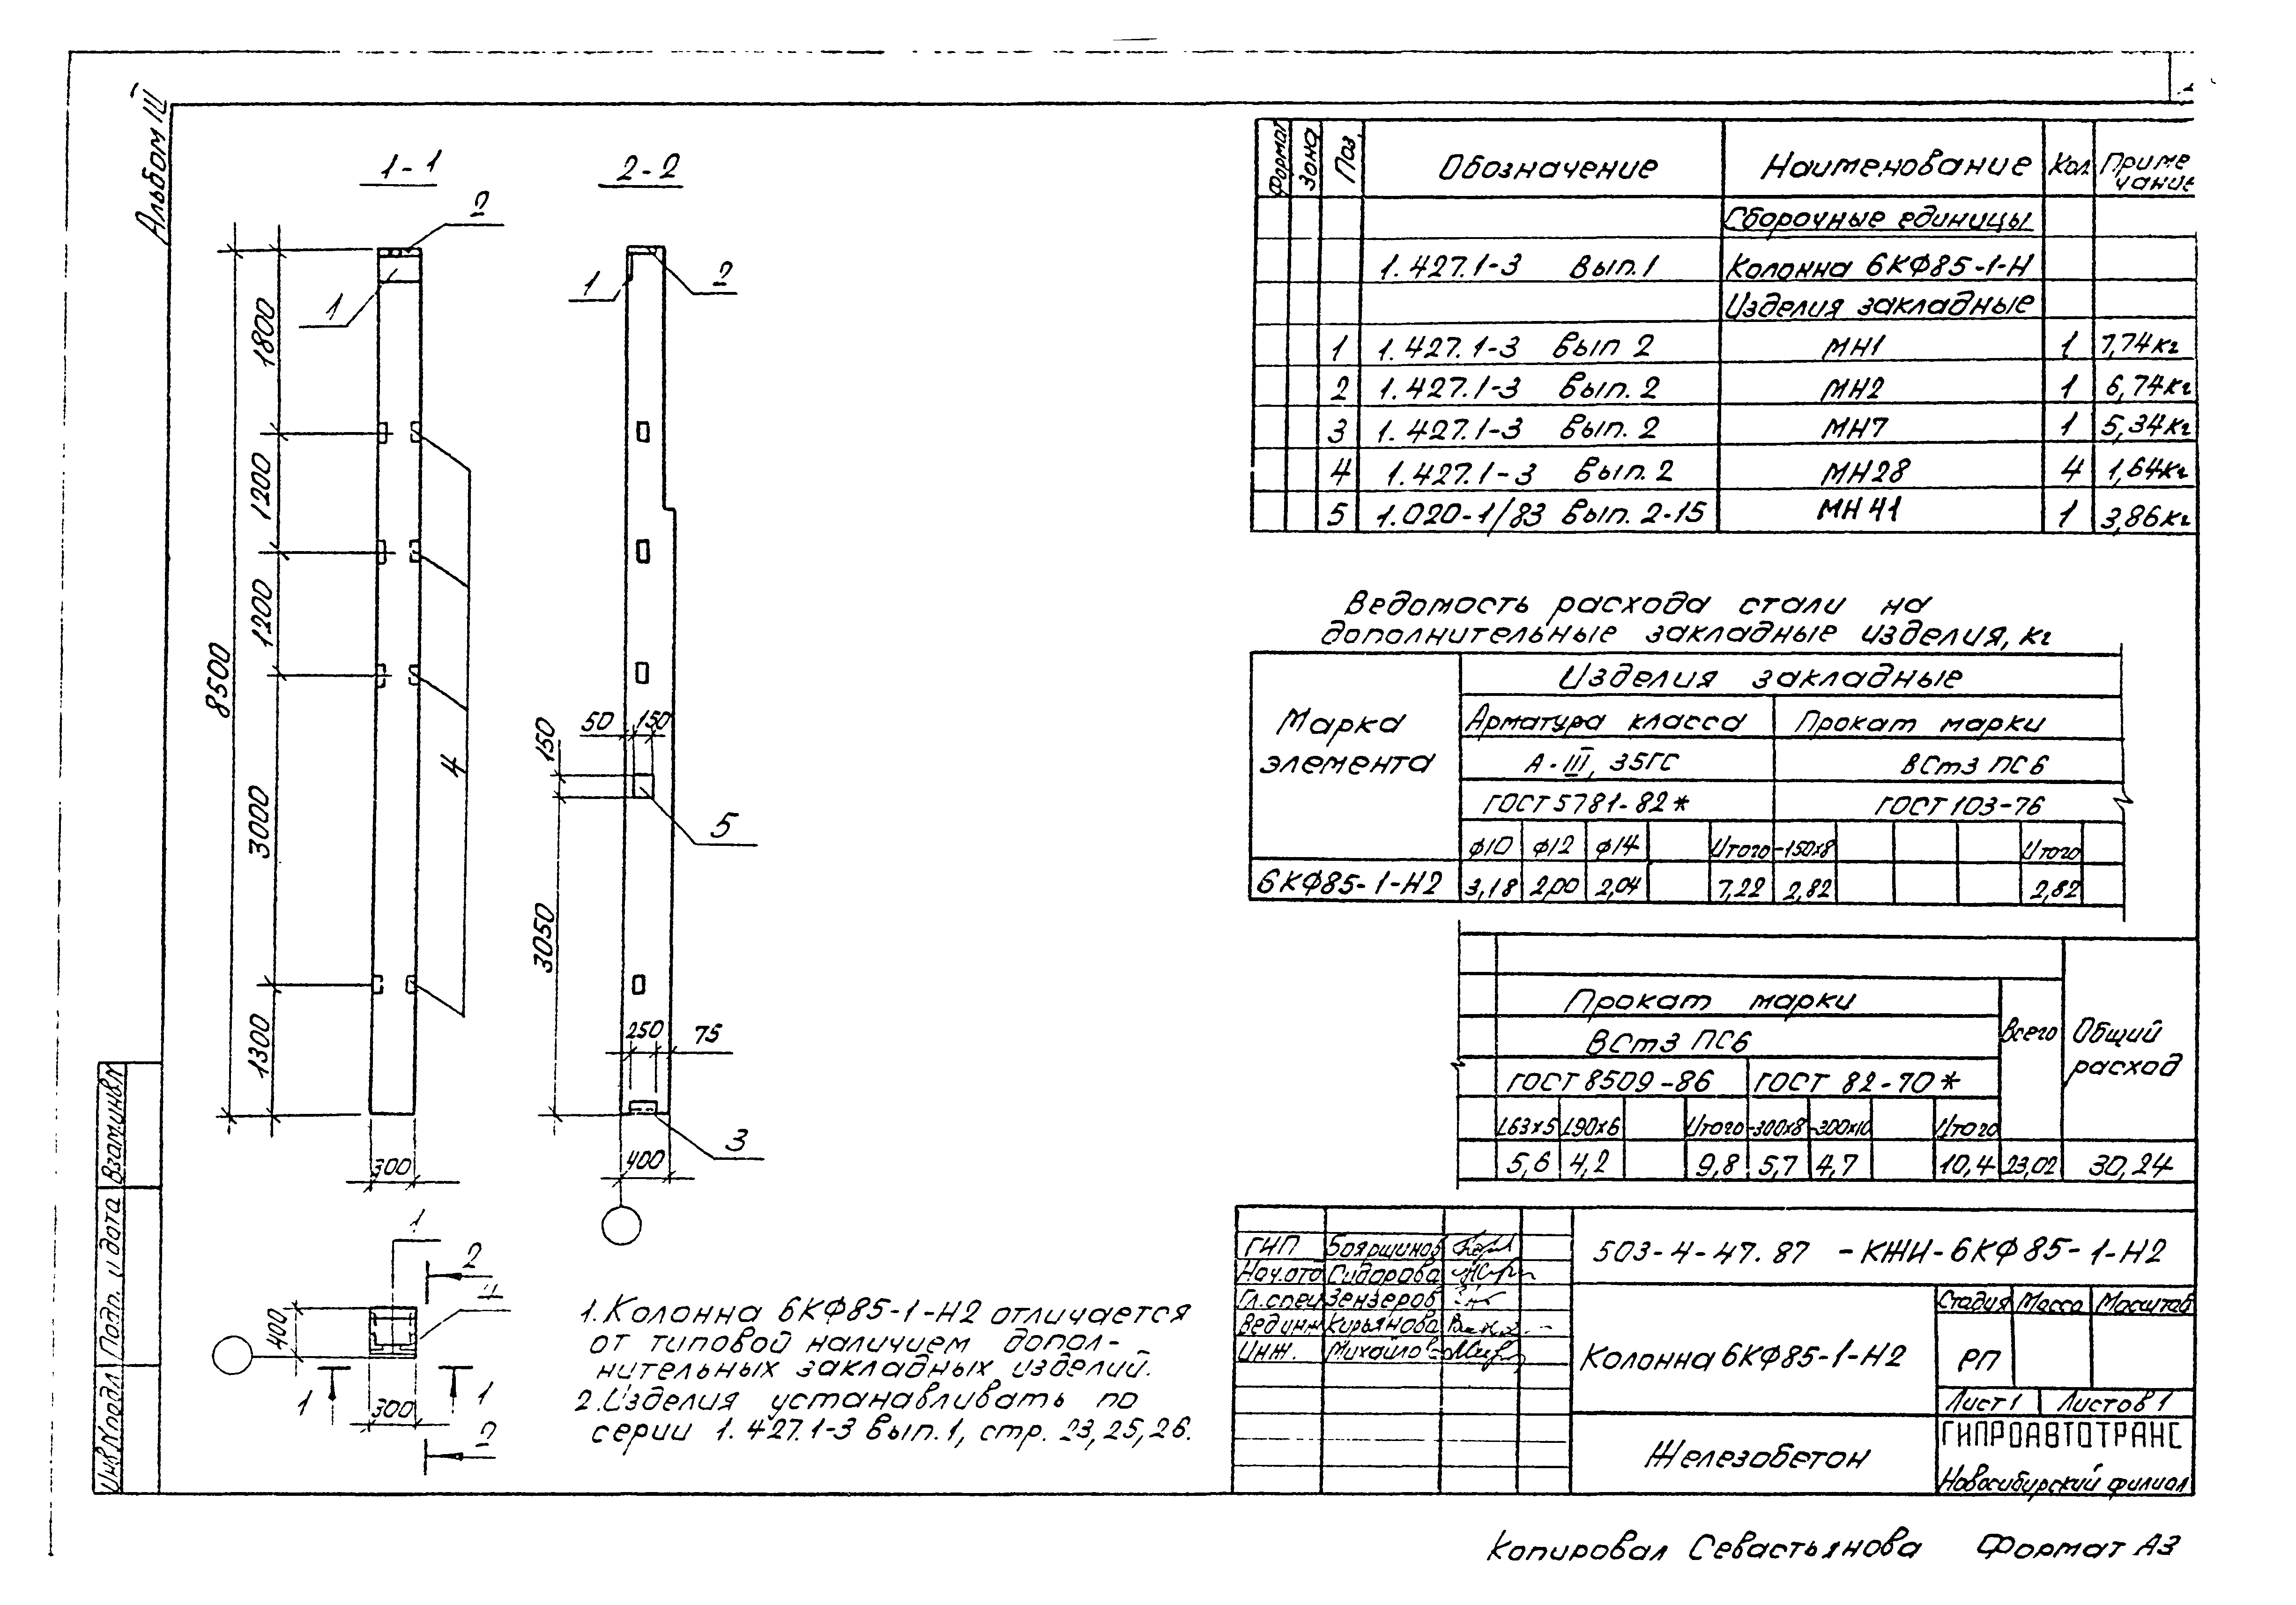 Альбом III
1-1
2-2
2
1
1
2
1800
1200
1200
8500
3000
1300
4
50
150
150
5
3050
250
75
3
300
400
1
2
4
400
1
1
300
2
1. Колонна 6КФ85-1-Н2 отличается
от типовой наличием допол-
нительных закладных изделий.
2. Изделия устанавливать по
серии 1.427.1-3 вып.1, стр. 23,25,26.
Формат Зона Поз. Обозначение Наименование Кол. Приме
чание
Сборочные единицы
1.427.1-3 вып.1 Колонна 6КФ85-1-Н
Изделия закладные
1 1.427.1-3 вып 2 МН1 1 7,74кг
2 1.427.1-3 вып. 2 МН2 1 6,74кг
3 1.427.1-3 вып. 2 МН7 1 5,34кг
4 1.427.1-3 вып. 2 МН28 4 1,64кг
5 1.020-1/83 вып. 2-15 МН41 1 3,86кг
Ведомость расхода стали на
дополнительные закладные изделия, кг
Марка
элемента
Изделия закладные
Арматура класса Прокат марки
А-III, 35ГС ВСт3 ПС6
ГОСТ 5781-82* ГОСТ 103-76
ф10 ф12 ф14 Итого -150х8 Итого
6КФ85-1-Н2 3,18 2,00 2,04 7,22 2,82 2,82
Прокат марки
ВСт3 ПС6
Всего
Общий
расход
ГОСТ 8509-86 ГОСТ 82-70*
L63х5 L90х6 Итого -300х8 -300х10 Итого
5,6 4,2 9,8 5,7 4,7 10,4 23,02 30,24
ГИП Боярщинов
Нач.отд Сидорова
Гл.спец Зензеров
Вед инж Кирьянова
Инж. Михайлов
503-4-47.87 -КЖИ-6КФ85-1-Н2
Колонна 6КФ85-1-Н2
Стадия Масса Масштаб
РП
Лист 1 Листов 1
Железобетон
ГИПРОАВТОТРАНС
Новосибирский филиал
Взам.инв.N
Подп. и дата
Инв.Nподл
Копировал Севастьянова Формат А3